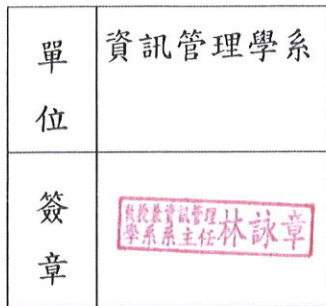 單位
資訊管理學系
簽章
教授兼資訊管理
學系系主任林詠章